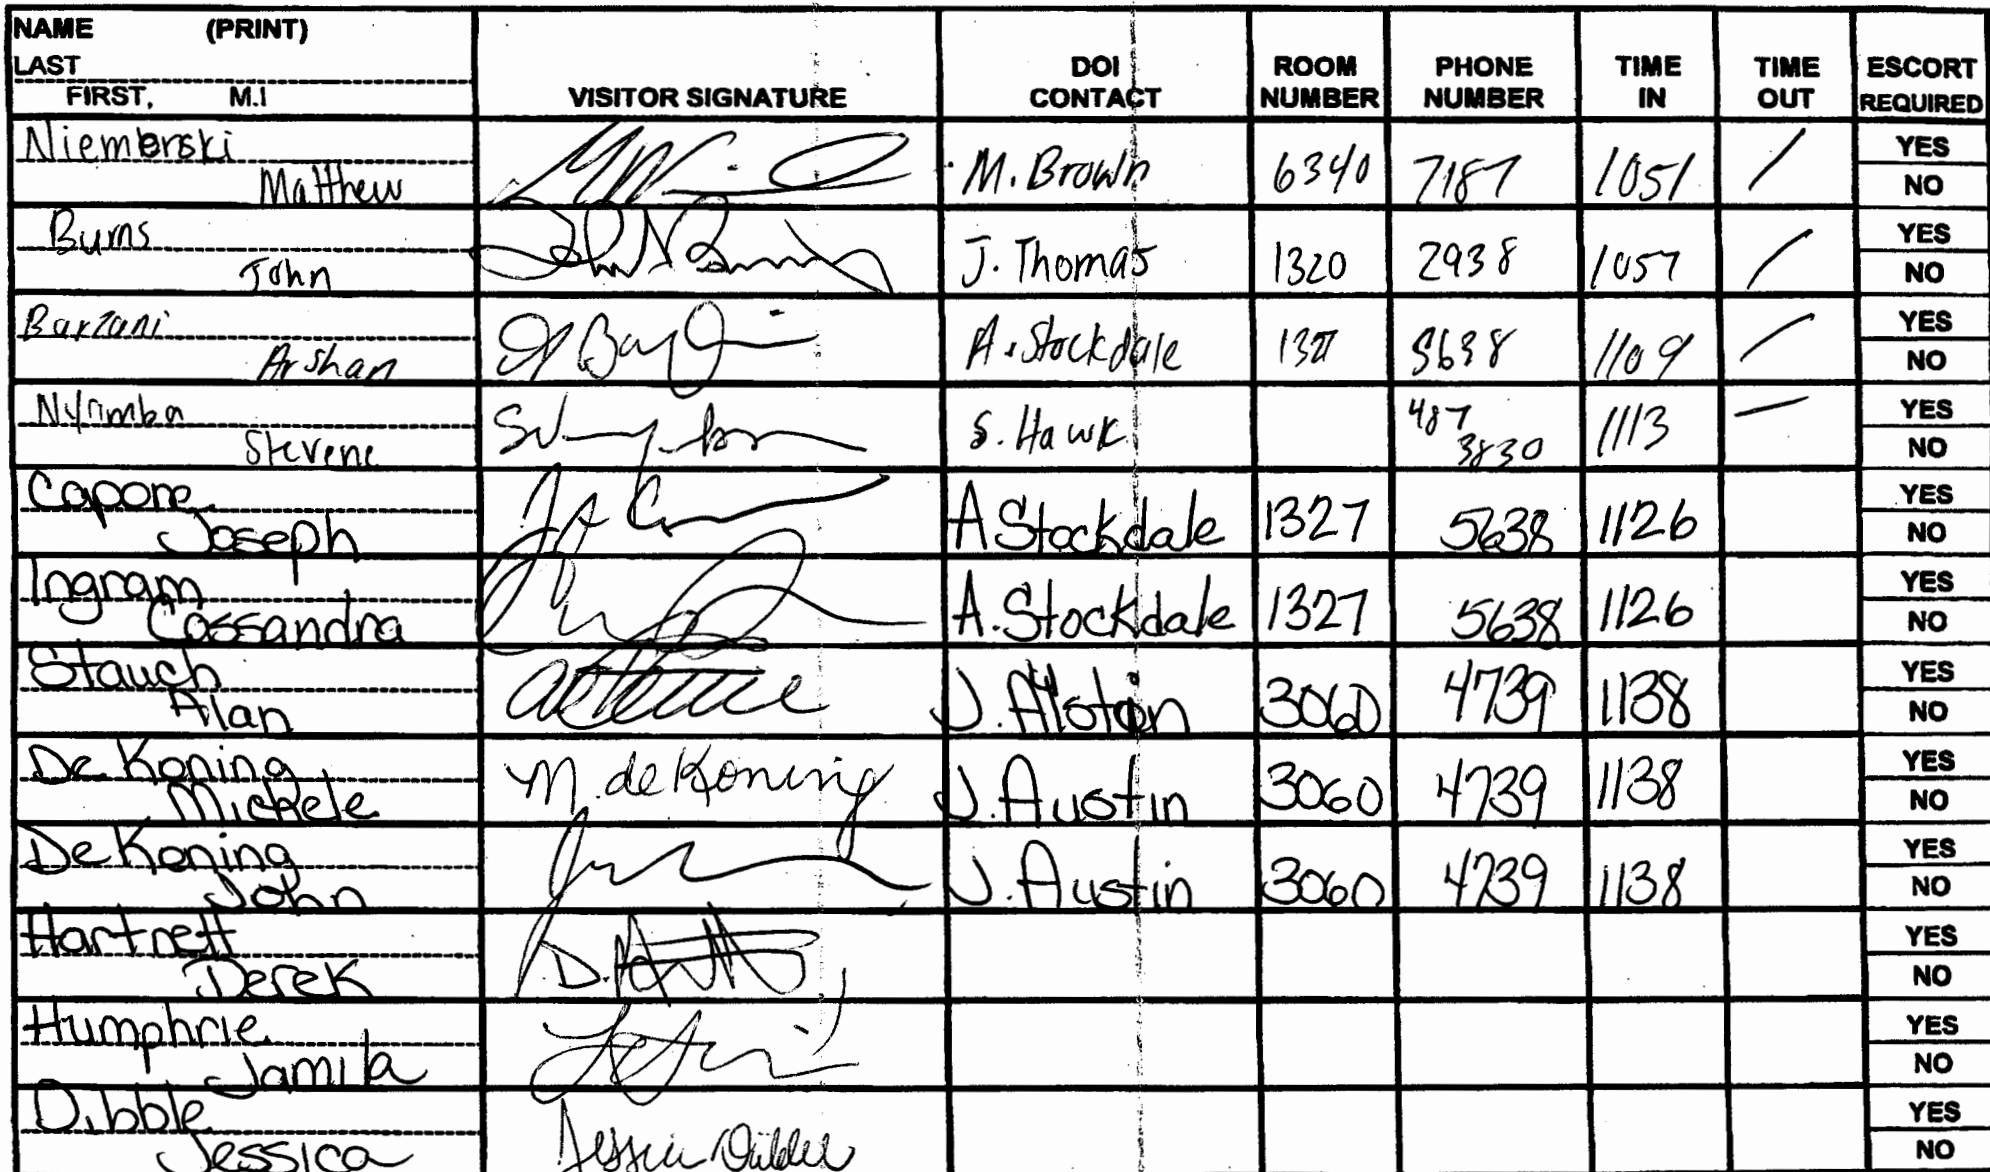 NAME (PRINT)
LAST
FIRST, M.I
VISITOR SIGNATURE
DOI CONTACT
ROOM NUMBER
PHONE NUMBER
TIME IN
TIME OUT
ESCORT REQUIRED
Niemerski
Matthew M. Brown 6340 7187 1051 / YES NO
Burns
John J. Thomas 1320 2938 1057 / YES NO
Barzani
Arshan A. Stockdale 5638 1109 / YES NO
Stevene S. Hawk 487 3830 1113 — YES NO
Capone
Joseph A Stockdale 1327 5638 1126 YES NO
Ingram
Cassandra A. Stockdale 1327 5638 1126 YES NO
Stauch
Alan J. 3060 4739 1138 YES NO
De Koning
Michele M. de Koning J. Austin 3060 4739 1138 YES NO
De Koning
John J. Austin 3060 4739 1138 YES NO
Hartnett
Derek YES NO
Humphrie
Jamila YES NO
Dibble
Jessica Jessica Dibble YES NO